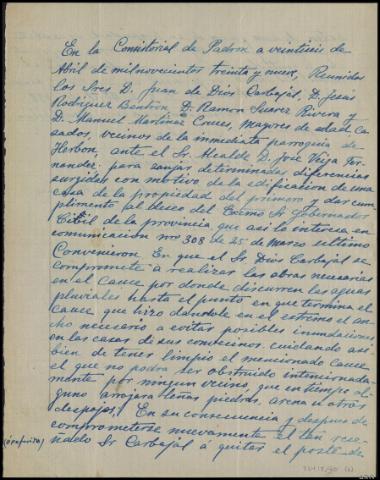 En la Consistorial de Padron a veintiseis de
Abril de mil novecientos treinta y nueve, Reunidos
los Sres D. Juan de Dios Carbajal, D. Jesús
Rodriguez Bentron D. Ramon Suarez Rivera y
D. Manuel Martinez Couces, mayores de edad ca-
sados, vecinos de la inmediata parroquia de
Herbon ante el Sr. Alcalde D. José Veiga Fer-
nandez para zanjar determinadas diferencias
surgidas con motivo de la edificacion de una
casa de la propiedad del primero y dar cum-
plimiento al deseo del Excmo Sr Gobernador
Cibil de la provincia que asi lo interesa en
comunicacion nro 308 de 25 de Marzo ultimo
Convenieron. En que el Sr Dios Carbajal se
compromete a realizar las obras necesarias
en el cauce por donde discurren las aguas
pluviales hasta el punto en que termina el
cauce que hizo dandole en el extremo el an-
cho necesario a evitar posibles inundaciones
en las casas de sus convecinos. cuidando asi
bien de tener limpio el mencionado cauce
el que no podra ser obstruido intencionada-
mente por ningun vecino, que en tiempo al-
guno arrojara leñas piedras, arena u otros
despojos. En su consecuencia y despues de
comprometerse nuevamente el tan rese-
ñado Sr Carbajal á quitar el poste de